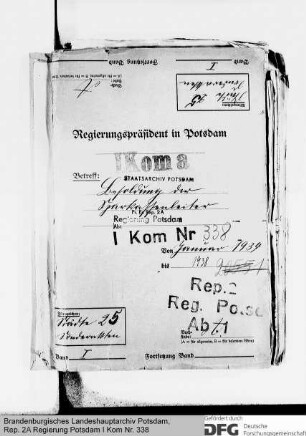 Fortsetzung Band
I
Regierungspräsident in Potsdam
I Kom a
STAATSARCHIV POTSDAM
Betreff:
Besoldung der
Sparkassenleiter
Regierung Potsdam
I Kom Nr 338
Von Januar 1939
bis 1938
Rep. 2
Reg. Potsd
Abt. 1
Städte 25
Sonderakten
Band I
Fortsetzung Band
Brandenburgisches Landeshauptarchiv Potsdam,
Rep. 2A Regierung Potsdam I Kom Nr. 338
Gefördert durch
DFG Deutsche
Forschungsgemeinschaft